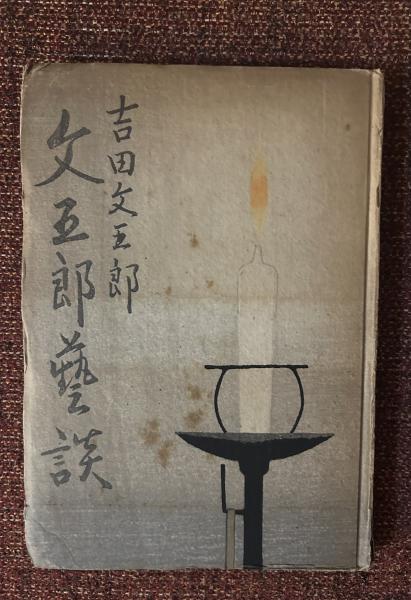 吉田文五郎
文五郎藝談